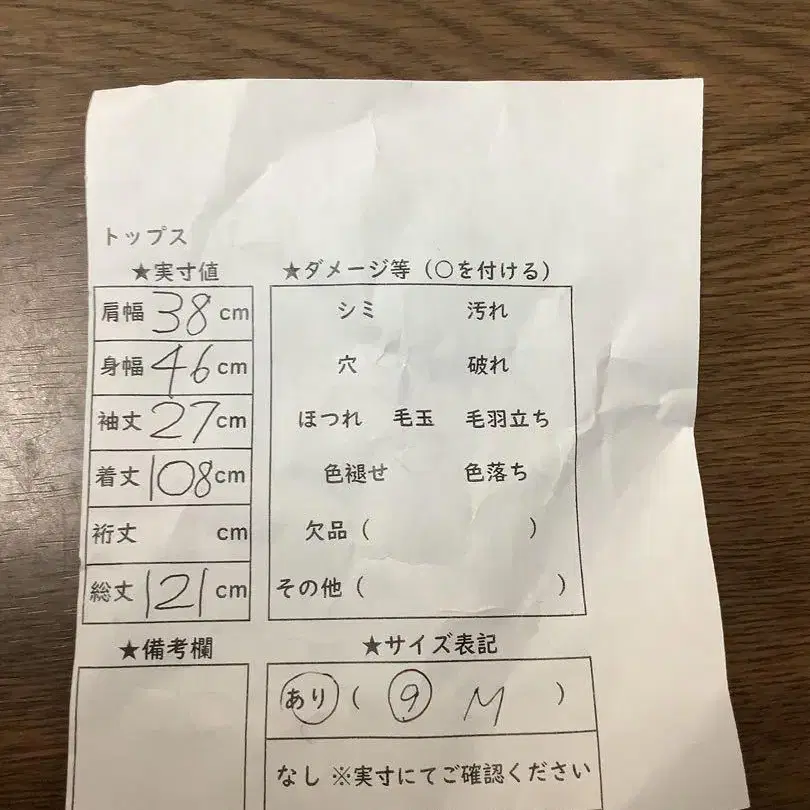 トップス
★実寸値
肩幅 38 cm
身幅 46 cm
袖丈 27 cm
着丈 108 cm
裄丈 cm
総丈 121 cm
★ダメージ等（○を付ける）
シミ 汚れ
穴 破れ
ほつれ 毛玉 毛羽立ち
色褪せ 色落ち
欠品（ ）
その他（ ）
★備考欄
★サイズ表記
あり（ ⑨ M ）
なし ※実寸にてご確認ください